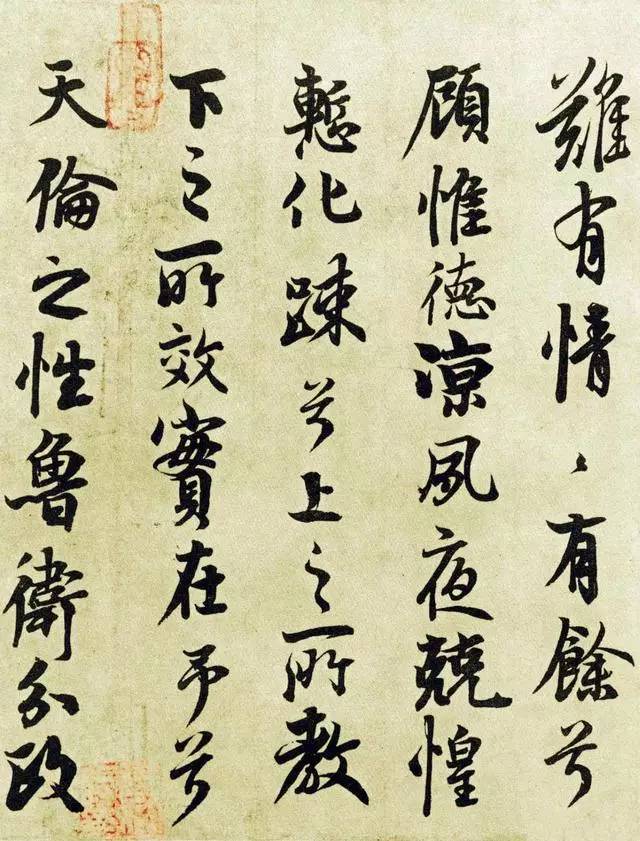 雖有情情有餘兮
顧惟德涼夙夜兢惶
慙化踈兮上之所教
下之所效實在予兮
天倫之性魯衛分政